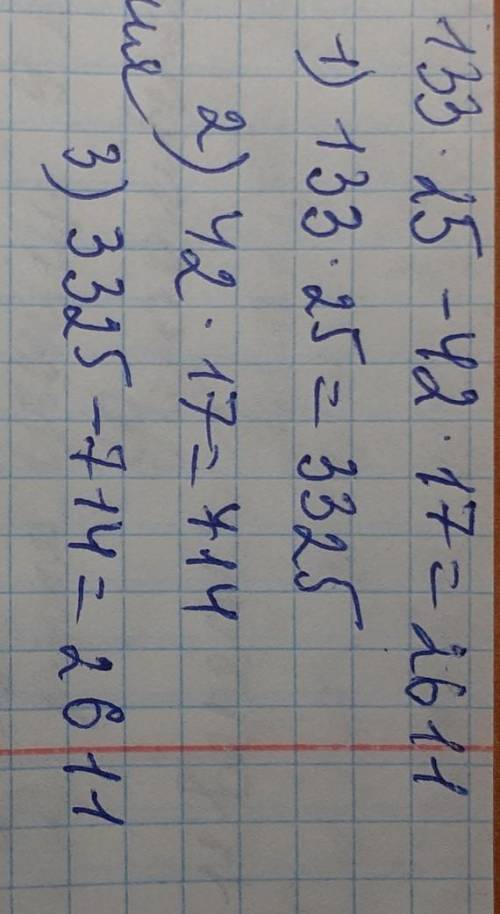 133 · 25 - 42 · 17 = 2611
1) 133 · 25 = 3325
2) 42 · 17 = 714
3) 3325 - 714 = 2611